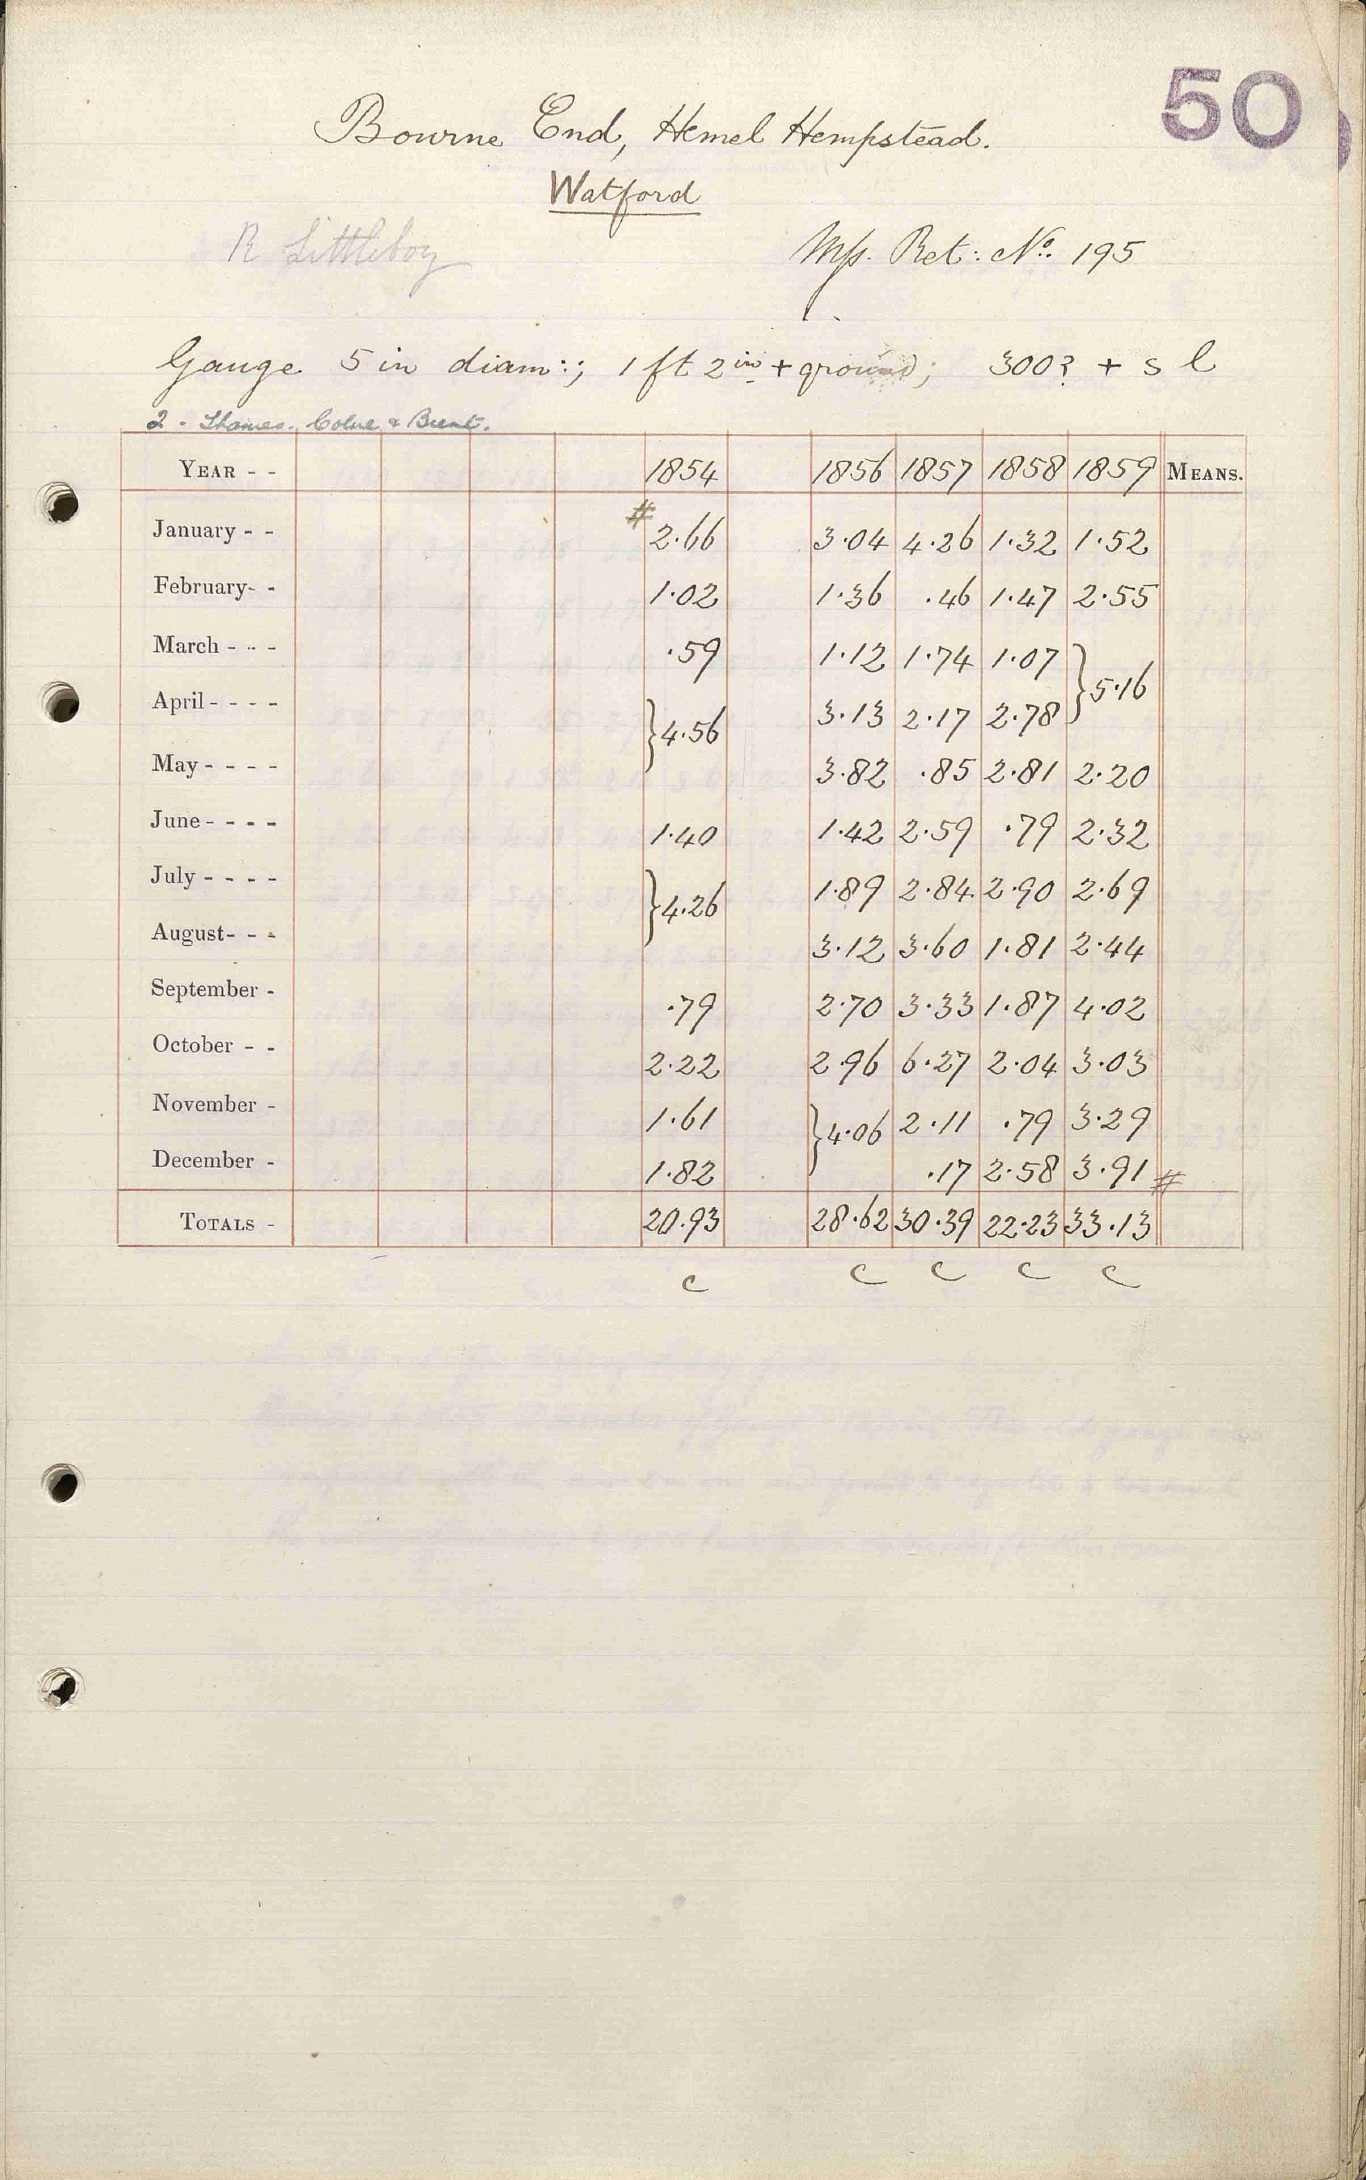 50
Bourne End, Hemel Hempstead.
Watford
R Littleboy Mss. Ret: No. 195
Gauge 5 in diam:; 1 ft 2 in + ground; 300? + s l
2 - Thames. Colne & Brent.
YEAR - - 1854 1856 1857 1858 1859 MEANS.
January - - # 2.66 3.04 4.26 1.32 1.52
February- - 1.02 1.36 .46 1.47 2.55
March - - - .59 1.12 1.74 1.07 } 5.16
April - - - - } 4.56 3.13 2.17 2.78
May - - - - 3.82 .85 2.81 2.20
June - - - - 1.40 1.42 2.59 .79 2.32
July - - - - } 4.26 1.89 2.84 2.90 2.69
August- - - 3.12 3.60 1.81 2.44
September - .79 2.70 3.33 1.87 4.02
October - - 2.22 2.96 6.27 2.04 3.03
November - 1.61 } 4.06 2.11 .79 3.29
December - 1.82 .17 2.58 3.91 #
TOTALS - 20.93 28.62 30.39 22.23 33.13
c c c c c